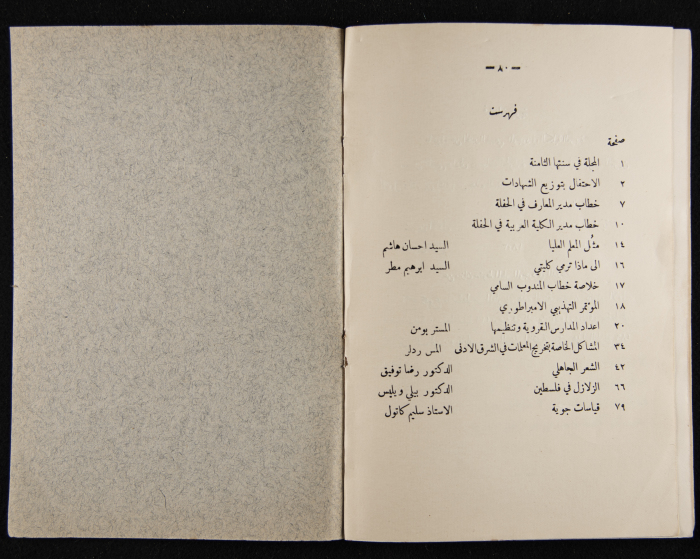 — ٨٠ —
فهرست
صفحة
١ المجلة في سنتها الثامنة
٢ الاحتفال بتوزيع الشهادات
٧ خطاب مدير المعارف في الحفلة
١٠ خطاب مدير الكلية العربية في الحفلة
١٤ مثُل المعلم العليا السيد احسان هاشم
١٦ الى ماذا ترمي كليتي السيد ابرهيم مطر
١٧ خلاصة خطاب المندوب السامي
١٨ المؤتمر التهذيبي الامبراطوري
٢٠ اعداد المدارس القروية وتنظيمها المستر بومن
٣٤ المشاكل الخاصة بتخريج المعلمات في الشرق الادنى المس ردلر
٤٢ الشعر الجاهلي الدكتور رضا توفيق
٦٦ الزلازل في فلسطين الدكتور بيلي ويليس
٧٩ قياسات جوية الاستاذ سليم كاتول